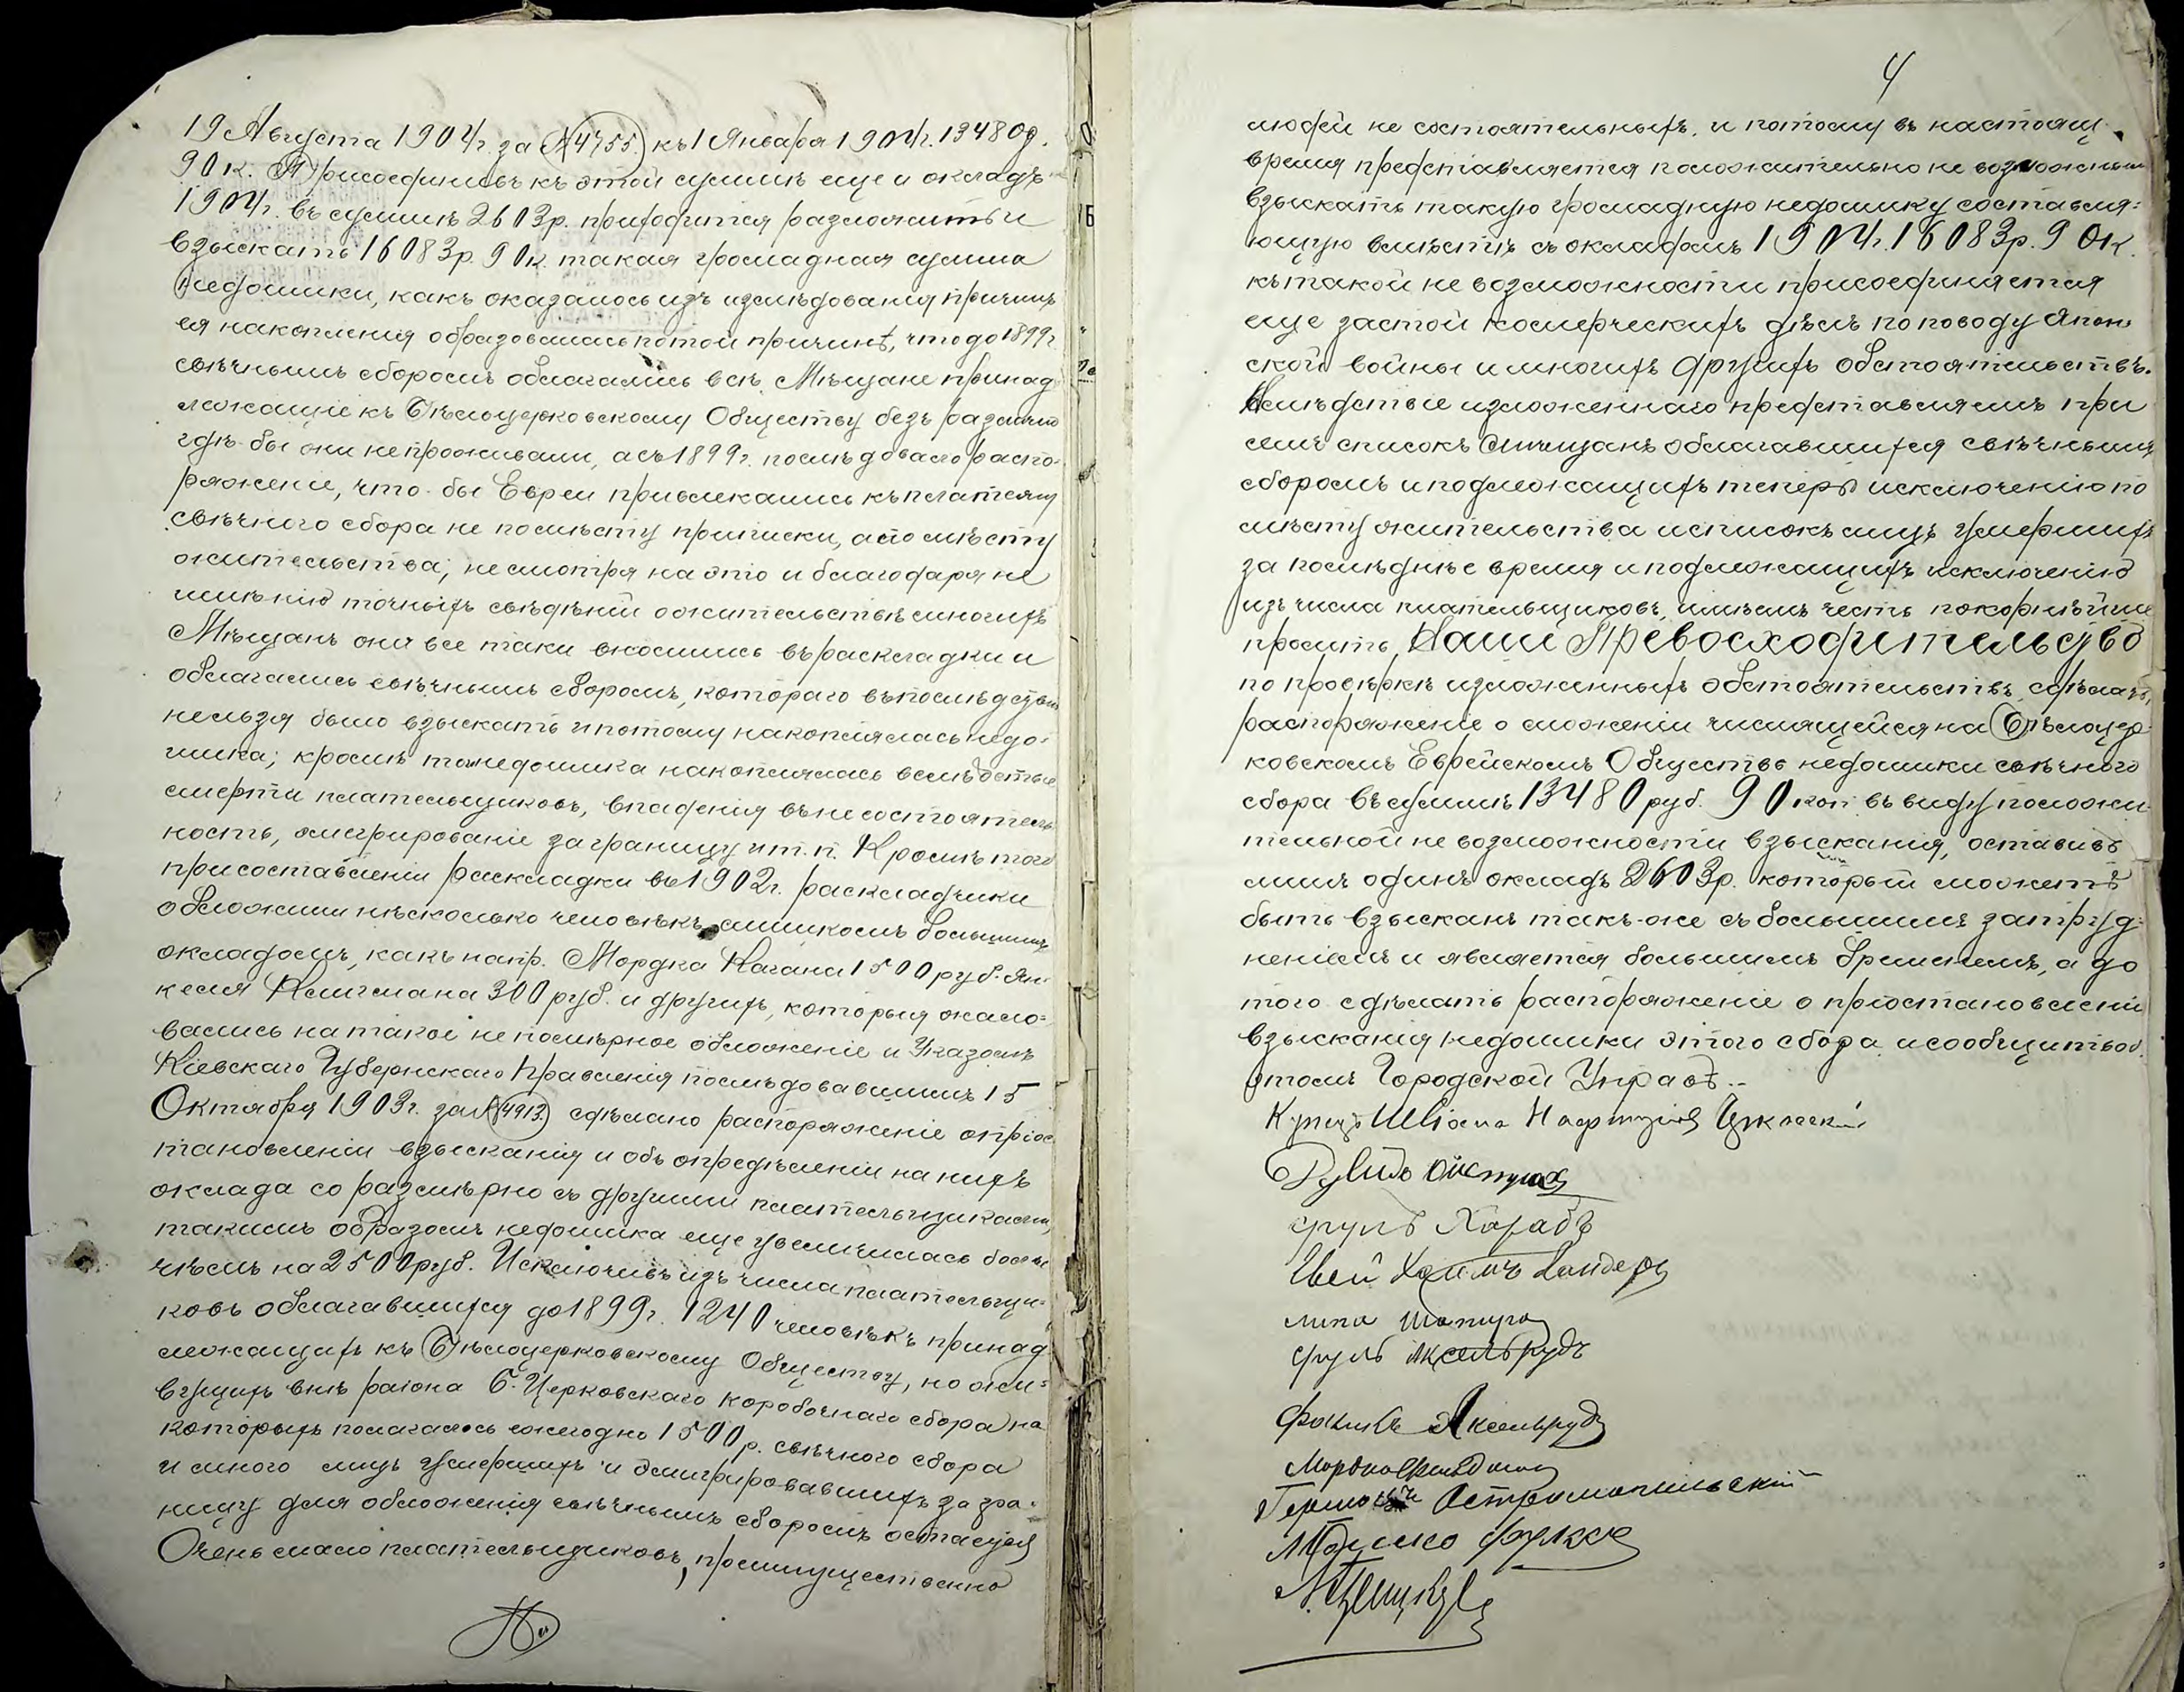 19 Августа 1904г. за №4755. къ 1 Января 1904г. 13480р.
90к. Присоединивъ къ этой суммѣ еще и окладъ
1904г. въ суммѣ 2603р. приходится разложить и
взыскать 16083р. 90к. такая громадная сумма
недоимки, какъ оказалось изъ изслѣдованія причинъ
ея накопленія образовалась потой причинѣ, что до 1899г.
свѣчнымъ сборомъ облагались всѣ Мѣщане принад
лежащіе къ Бѣлоцерковскому Обществу безъ различія
гдѣ-бы они непроживали, а съ 1899г. послѣдовало распо-
ряженіе, что-бы Евреи привлекались къ платежу
свѣчного сбора не по мѣсту приписки, а по мѣсту
жительства; несмотря на это и благодаря не
имѣнію точныхъ свѣдѣній о жительствѣ многихъ
Мѣщанъ они все таки вносились въ раскладки и
облагались свѣчнымъ сборомъ, котораго впослѣдствіи
нельзя было взыскать и потому накоплялась недо-
имка; кромѣ того недоимка накоплялась вслѣдствіе
смерти плательщиковъ, впаденія въ несостоятель
ность, эмигрированіе заграницу и т.п. Кромѣ того
при составленіи раскладки въ 1902г. раскладчики
обложили нѣсколько человѣкъ слишкомъ большимъ
окладомъ, какъ напр. Мордка Кагана 1500руб. Ян-
келя Клигмана 300руб. и другихъ, которыя жало-
вались на такое непомѣрное обложеніе и Указомъ
Кіевскаго Губернскаго Правленія послѣдовавшимъ 15
Октября 1903г. за №4913. сдѣлано распоряженіе опріос
тановленіи взысканія и объ опредѣленіи на нихъ
оклада со размѣрно съ другими плательщиками,
такимъ образомъ недоимка еще увеличилась болѣе
чѣмъ на 2500руб. Исключивъ изъ числа плательщи-
ковъ облагавшихся до 1899г. 1240 человѣкъ принад
лежащихъ къ Бѣлоцерковскому Обществу, но жи-
вущихъ внѣ раіона Б. Церковскаго коробочнаго сбора на
которыхъ полагалось ежегодно 1500р. свѣчного сбора
и много лицъ умершихъ и эмигрировавшихъ за гра-
ницу для обложенія свѣчнымъ сборомъ остается
Очень мало плательщиковъ, преимущественно
4
людей не состоятельныхъ. и потому въ настоящ
время представляется положительно не возможнымъ
взыскать такую громадную недоимку составля-
ющую вмѣстѣ съ окладомъ 1904г. 16083р. 90к.
къ такой не возможности присоединяется
еще застой комерческихъ дѣлъ по поводу Япон-
ской войны и многихъ другихъ обстоятельствъ.
Вслѣдствіе изложеннаго представляемъ при
семъ списокъ Мѣщанъ облагавшихся свѣчнымъ
сборомъ и подлежащихъ теперь исключенію по
мѣсту жительства и списокъ лицъ умершихъ
за послѣднѣе время и подлежащихъ исключенію
изъ числа плательщиковъ, имѣемъ честь покорнѣйше
просить, Ваше Превосходительство
по провѣркѣ изложенныхъ обстоятельствъ сдѣлать
распоряженіе о сложеніи числящейся на Бѣлоцер-
ковскомъ Еврейскомъ Обществѣ недоимки свѣчного
сбора въ суммѣ 13480руб. 90коп. въ виду положи-
тельной не возможности взысканія, оставивъ
лишъ одинъ окладъ 2603р. который можетъ
быть взысканъ такъ-же съ большимъ затруд-
неніемъ и является большимъ бременемъ, а до
того сдѣлать распоряженіе о пріостановленіи
взысканія недоимки этого сбора и сообщить об
этомъ Городской Управѣ.-
Купецъ Шліома
Дувидъ
Сруль
Хаимъ
липа Шапиро
Сруль Аксельрудъ
Аксельрудъ
Мордко
Остромогильскій
Мошко